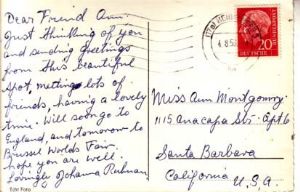 Dear Friend Ann
Just thinking of you
and sending greetings
from this beautiful
spot, meeting lots of
friends, having a lovely
time. Will soon go to
England, and tomorrow to
Brussel Worlds Fair.
Hope you are well.
Lovingly Johanna
Echt Foto
4.8.58
20
DEUTSCHE
Miss Ann Montgomery
1115 Anacapa St. Apt 6
Santa Barbara
California
U.S.A.